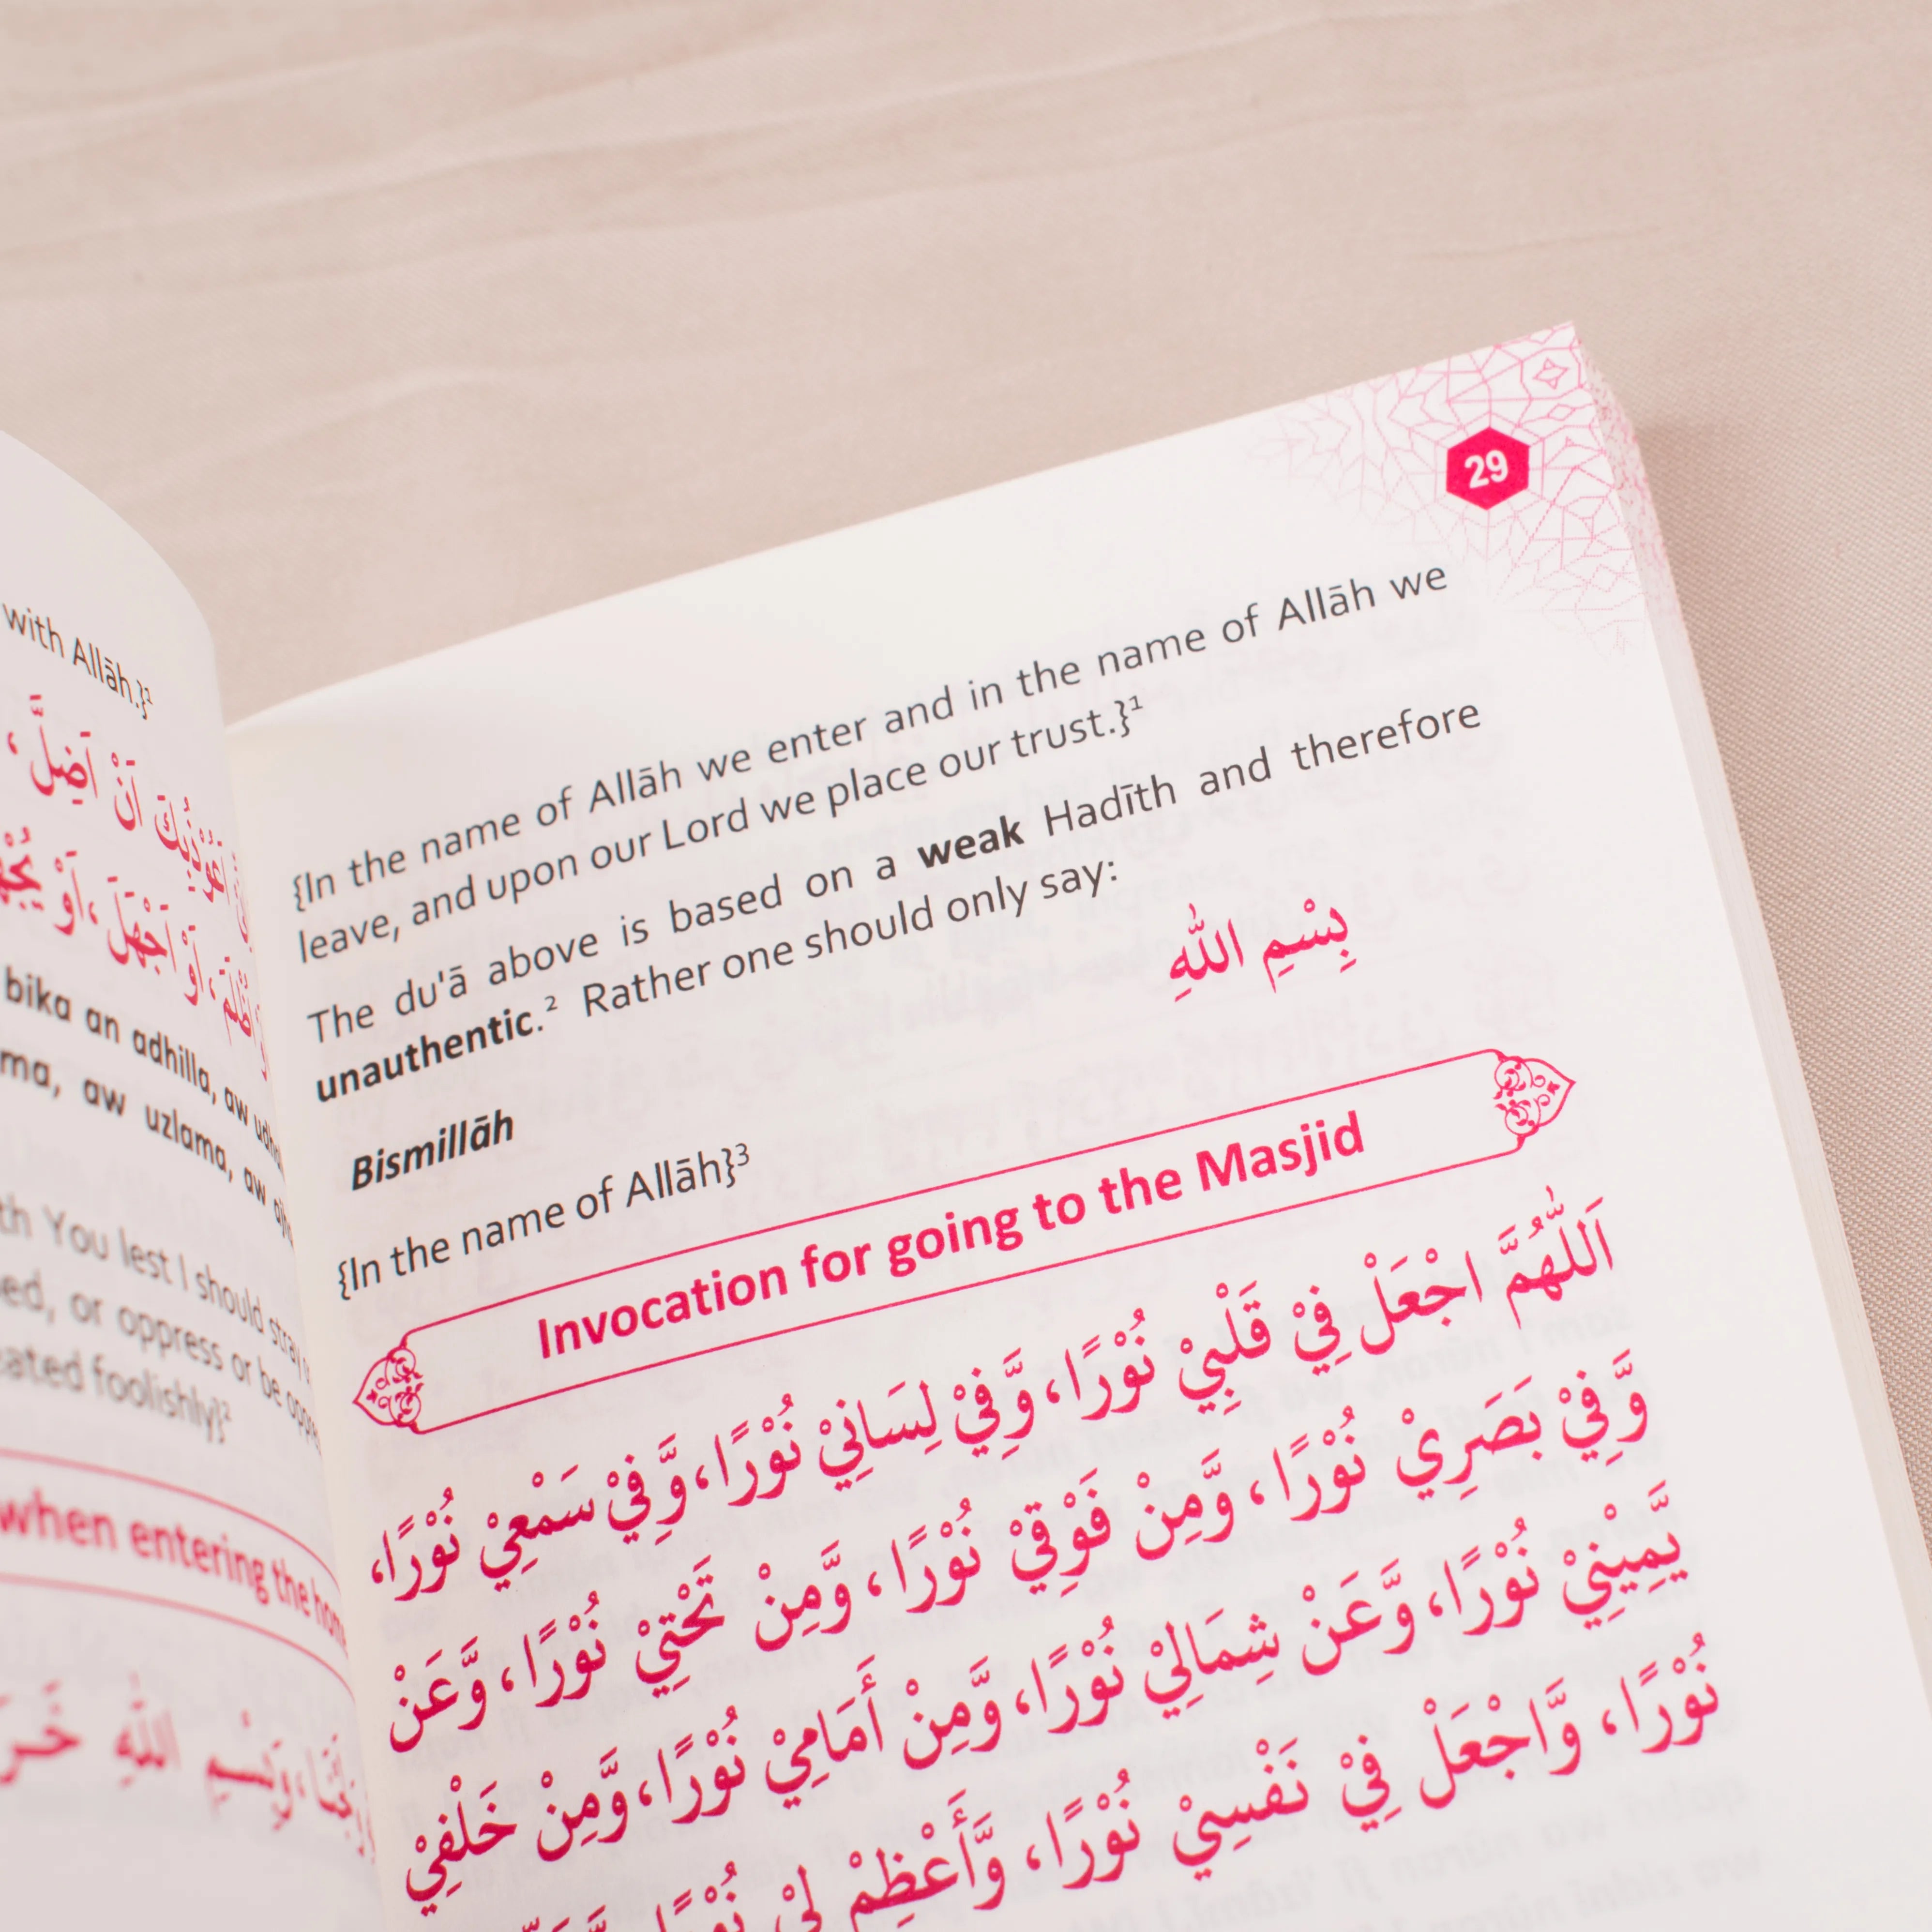 with Allāh.}²
اَضِلَّ،
اَنْ
اَوْ اَجْهَلَ، اَوْ
bika an adhilla, aw
ma, aw uzlama, aw
th You lest I should stray
ed, or oppress or be
eated foolishly}²
when entering the
وَبِسْمِ اللّٰهِ
29
{In the name of Allāh we enter and in the name of Allāh we
leave, and upon our Lord we place our trust.}¹
The du'ā above is based on a weak Hadīth and therefore
unauthentic.² Rather one should only say:
بِسْمِ اللّٰهِ
Bismillāh
{In the name of Allāh}³
Invocation for going to the Masjid
اَللّٰهُمَّ اجْعَلْ فِيْ قَلْبِيْ نُوْرًا، وَّفِيْ لِسَانِيْ نُوْرًا، وَّفِيْ سَمْعِيْ نُوْرًا،
وَّفِيْ بَصَرِيْ نُوْرًا، وَّمِنْ فَوْقِيْ نُوْرًا، وَّمِنْ تَحْتِيْ نُوْرًا، وَّعَنْ
يَّمِيْنِيْ نُوْرًا، وَّعَنْ شِمَالِيْ نُوْرًا، وَّمِنْ أَمَامِيْ نُوْرًا، وَّمِنْ خَلْفِيْ
نُوْرًا، وَّاجْعَلْ فِيْ نَفْسِيْ نُوْرًا، وَّأَعْظِمْ لِيْ نُوْرًا